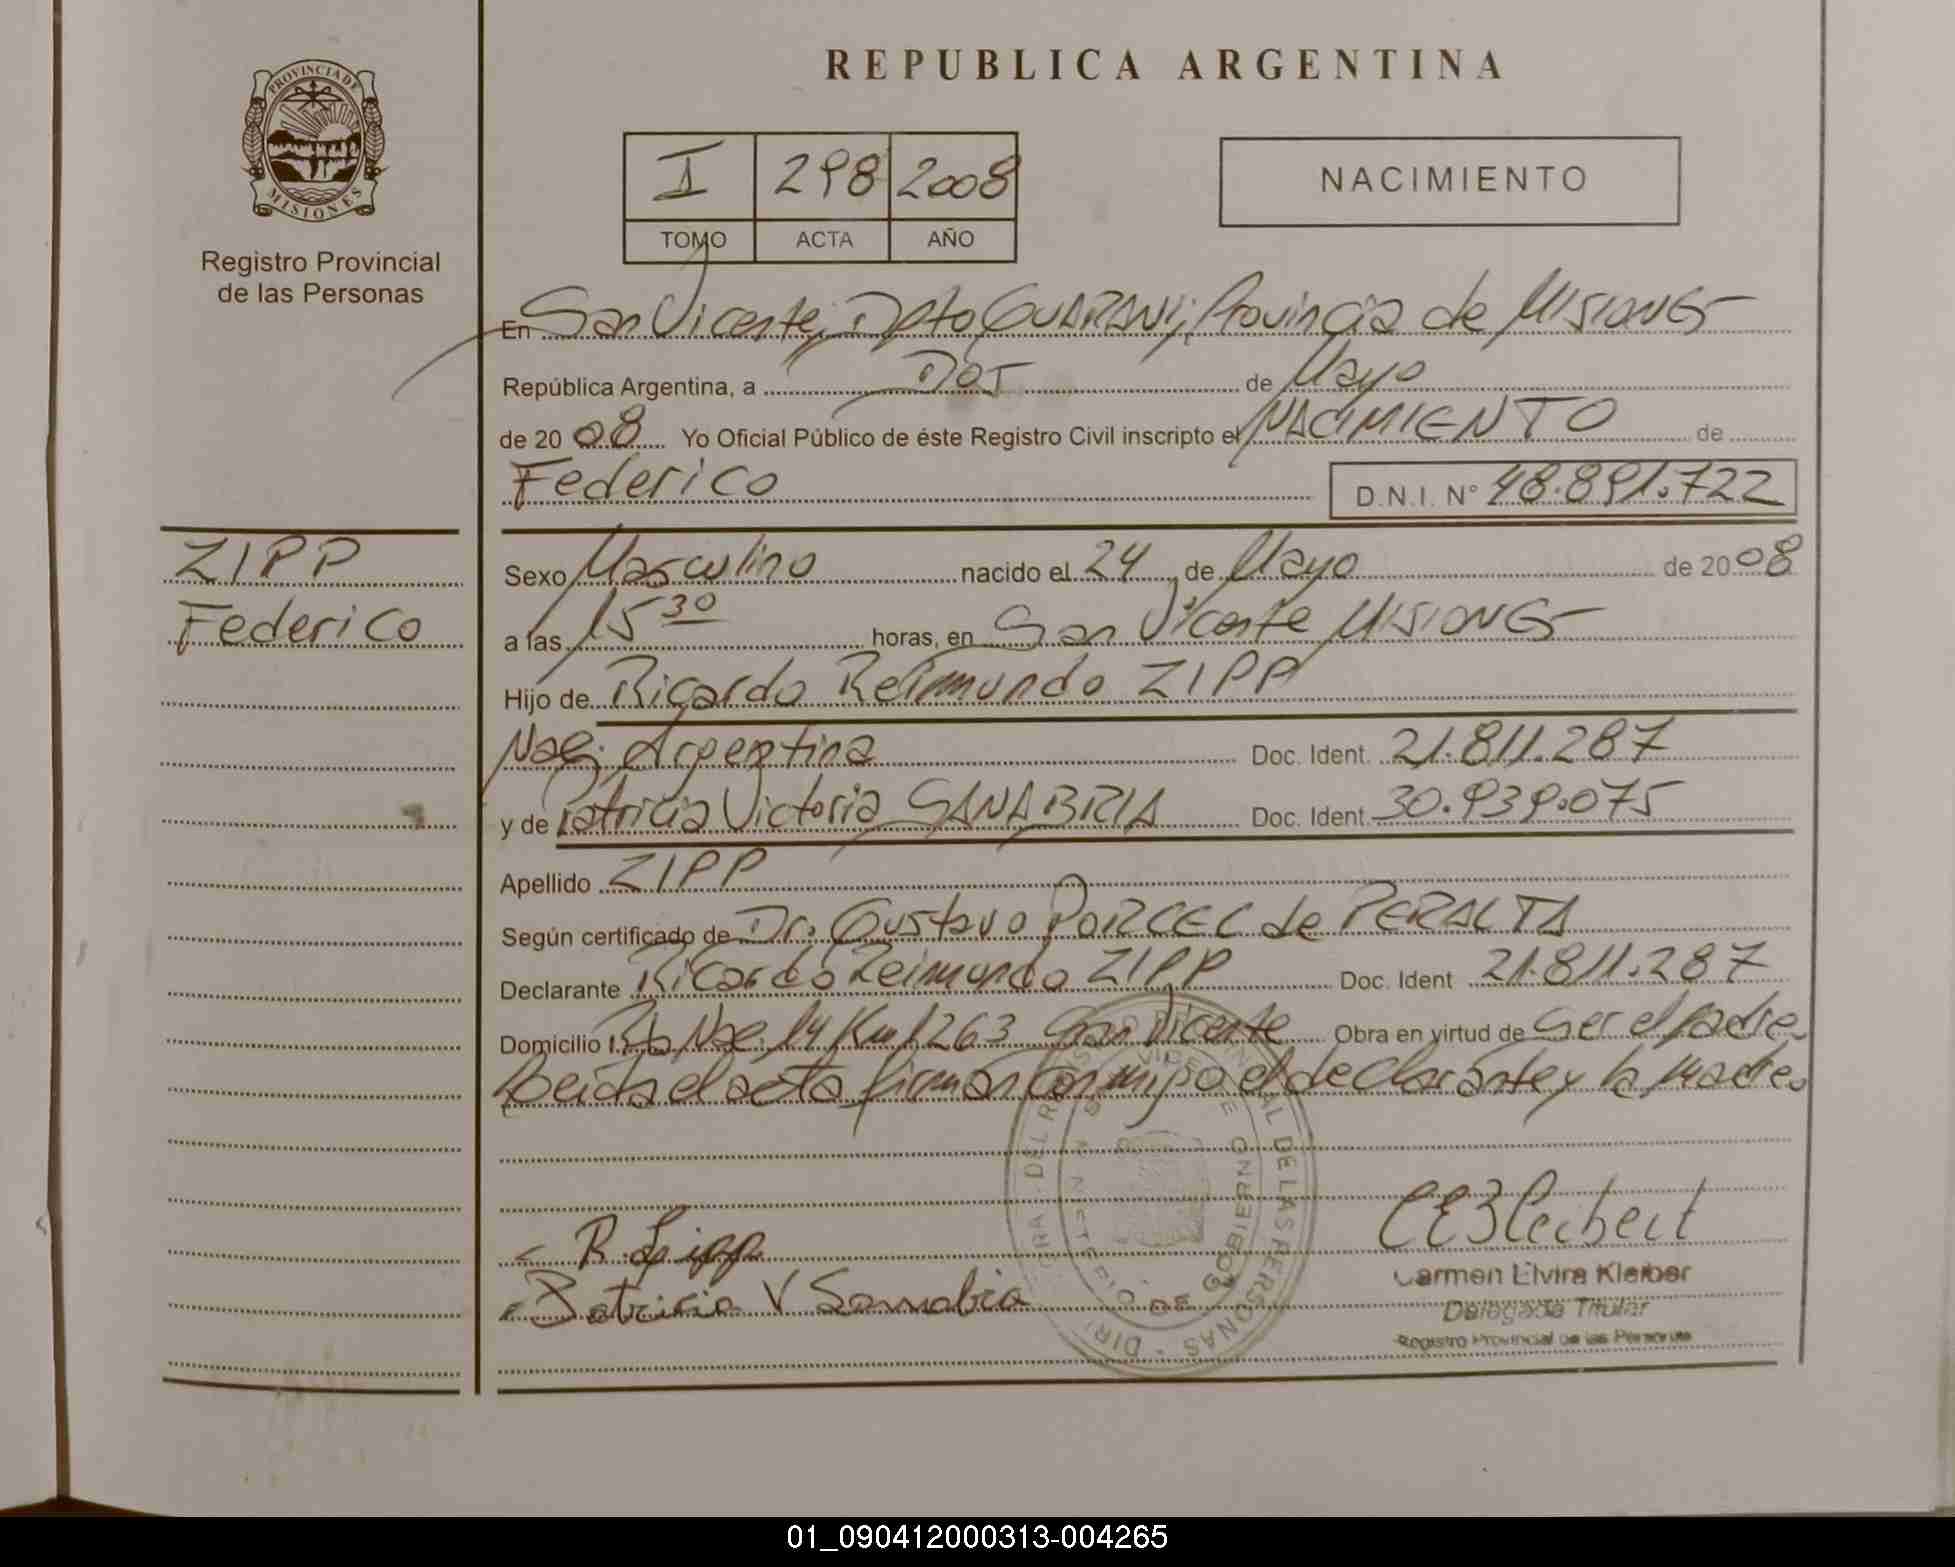 REPUBLICA ARGENTINA
PROVINCIA DE
MISIONES
Registro Provincial
de las Personas
I 298 2008
TOMO ACTA AÑO
NACIMIENTO
En San Vicente, Dpto GUARANI, Provincia de MISIONES
República Argentina, a Dos de Mayo
de 20 08 Yo Oficial Público de éste Registro Civil inscripto el NACIMIENTO de
Federico D.N.I. N° 48.891.722
ZIPP
Federico
Sexo Masculino nacido el 24 de Mayo de 20 08
a las 15 30 horas, en San Vicente MISIONES
Hijo de Ricardo Reimundo ZIPP
Nac. Argentina Doc. Ident. 21.811.287
y de Patricia Victoria SANABRIA Doc. Ident. 30.939.075
Apellido ZIPP
Según certificado de Dr. Gustavo PORCEL de PERALTA
Declarante Ricardo Reimundo ZIPP Doc. Ident 21.811.287
Domicilio Rta Nac. 14 Km 1263 San Vicente Obra en virtud de ser el padre
Leida el acta firman conmigo el declarante y la Madre.
R. Zipp
Patricia V Sanabria
Carmen Elvira Kleiber
Delegada Titular
Registro Provincial de las Personas
01_090412000313-004265